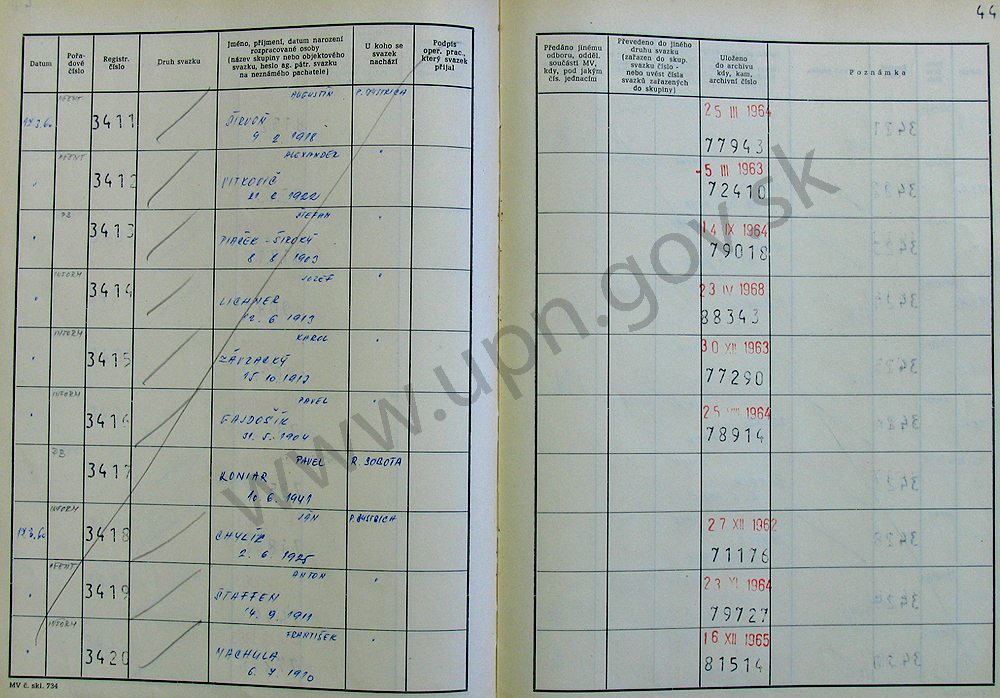 44
Datum
Pořa-
dové
číslo
Registr.
číslo
Druh svazku
Jméno, příjmení, datum narození
rozpracované osoby
(název skupiny nebo objektového
svazku, heslo ag. pátr. svazku
na neznámého pachatele)
U koho se
svazek
nachází
Podpis
oper. prac.,
který svazek
přijal
Předáno jinému
odboru, odděl.
součásti MV,
kdy, pod jakým
čís. jednacím
Převedeno do jiného
druhu svazku
(zařazen do skup.
svazku číslo -
nebo uvést čísla
svazků zařazených
do skupiny)
Uloženo
do archivu
kdy, kam,
archivní číslo
Poznámka
AGENT AUGUSTIN P. BYSTRICA 25 III 1964
3411 77943
9 2 1918
AGENT ALEXANDER -5 III 1963
3412 VITKOVIČ 72410
2 1922
PB ŠTEFAN 14 IX 1964
3413 PIAČEK - ŠIROKÝ 79018
8 8 1903
INFORM JOZEF 23 IV 1968
3414 LICHNER 88343
12. 6 1913
INFORM KAROL 30 XII 1963
3415 ZÁVRACKÝ 77290
15. 10 1913
INFORM PAVEL 25 1964
3416 GAJDOŠÍK 78914
31. 5. 1904
PB PAVEL R. SOBOTA
3417 KONIAR
10. 6. 1941
INFORM JÁN P. BYSTRICA 27 XII 1962
3418 CHYLÍK 71176
2. 6 1925
AGENT ANTON 23 XI 1964
3419 ŠTAFFEN 79727
4. 9. 1911
INFORM FRANTIŠEK 16 XII 1965
3420 MACHULA 81514
6. 7 1910
MV č. skl. 734
www.upn.gov.sk